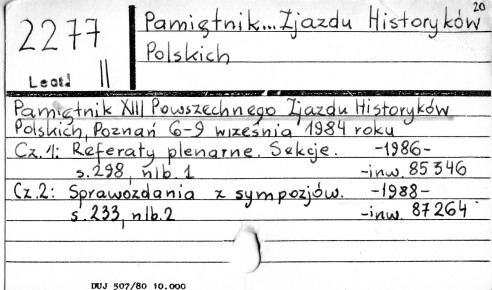 20
2277
Leotd II
Pamiętnik... Zjazdu Historyków
Polskich
Pamiętnik XIII Powszechnego Zjazdu Historyków
Polskich, Poznań 6-9 września 1984 roku
Cz. 1: Referaty plenarne. Sekcje. -1986-
s. 298, nlb. 1 -inw. 85346
Cz. 2: Sprawozdania z sympozjów. -1988-
s. 233, nlb. 2 -inw. 87264
DUJ 507/80 10.000